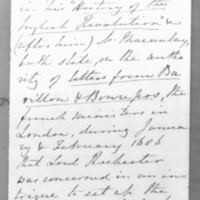 in his "History of the
English Revolution" &
(after him) Mr Macaulay,
both state, on the autho-
rity of letters from Ba-
rillon & Bonrepos, the
french ministers in
London, during Janua-
ry & February 1686
that Lord Rochester
was concerned in an in-
trigue to set up the